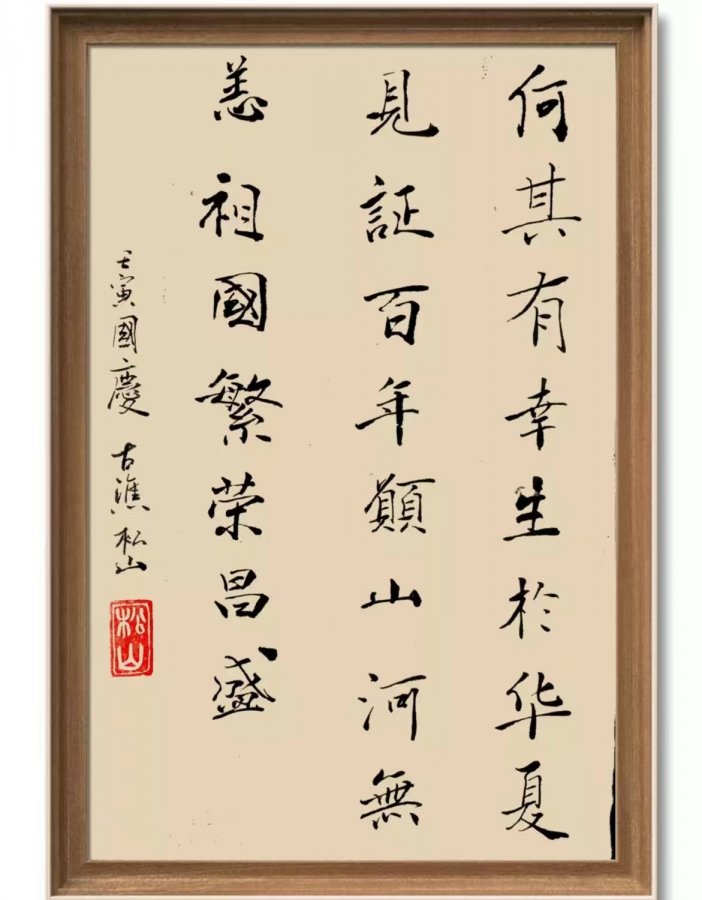 何其有幸生於华夏
見証百年願山河無
恙祖國繁荣昌盛
壬寅國慶 古譙 松山
松山